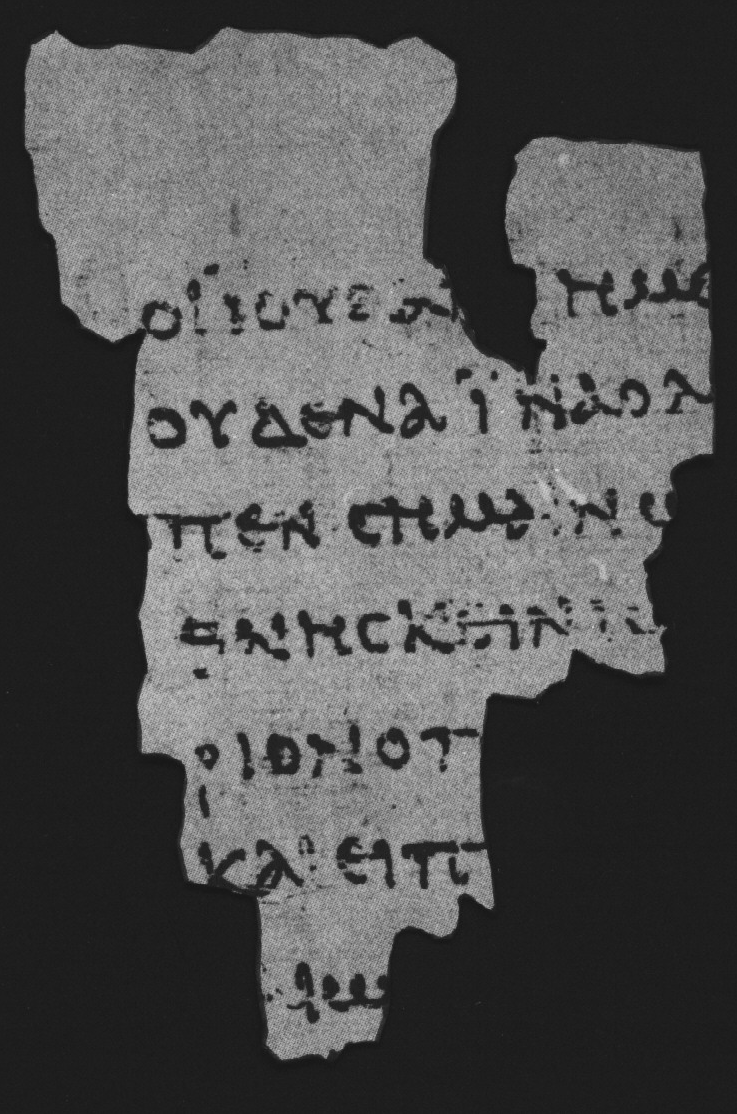 ΟΙ ΙΟΥΔΑΙ ΗΜΕ
ΟΥΔΕΝΑ ΙΝΑ Ο Λ
ΠΕΝ ΣΗΜΑΙΝΩ
ΘΝΗΣΚΕΙΝ ΙΣ
ΡΙΟΝ Ο Π
ΚΑΙ ΕΙΠ
ΜΙ